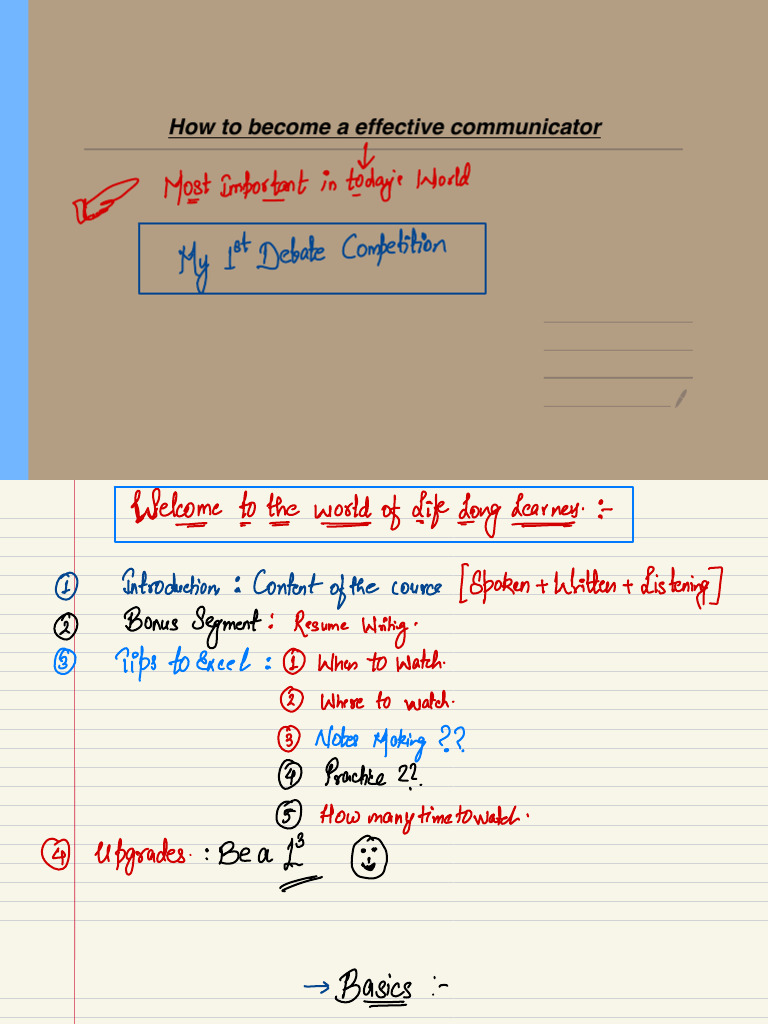 How to become a effective communicator
Most Important in today's World
My 1st Debate Competition
Welcome to the world of Life Long Learner :-
① Introduction : Content of the cource [Spoken + Written + Listening]
② Bonus Segment : Resume Writing.
③ Tips to Excel : ① When to watch.
② Where to watch.
③ Notes Making ??
④ Practice ??
⑤ How many time to watch.
④ Upgrades. : Be a L³
→ Basics :-